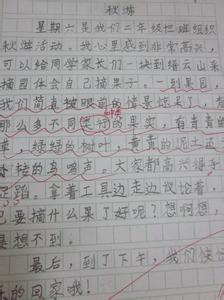 秋游
星期六是我们二年级七班组织
秋游活动。我心里感到非常高兴,
可以给同学家长们一块到缙云山采
摘园体会自己摘果子。一到果园,
我们简直被眼前的情景惊呆了,有
那么多不同类的果实,有青青的
种类
,绿绿的树叶,黄黄的泥土还
的鸟鸣声。大家都高兴得手
足蹈。拿着工具边走边议论着,
已要摘什么果了好呢?想啊想
是想不到。
最后,到了下午,我们快
乐的回家我!